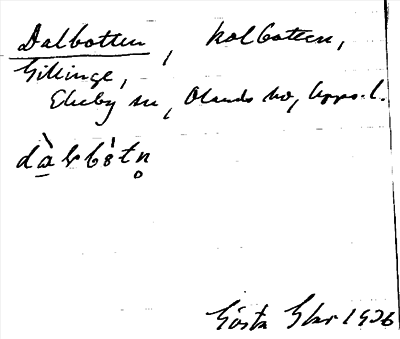 Dalbotten, kolbotten,
Gillinge,
Ekeby sn, Olands hd, Upps. l.
Gösta 1926